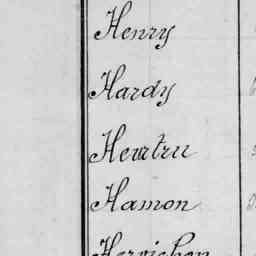 Henry
Hardy
Heurtru
Hamon